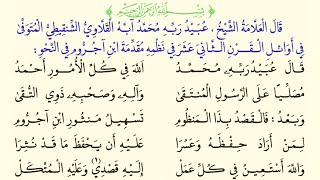 بِسْمِ اللَّهِ الرَّحْمَنِ الرَّحِيمِ
قَالَ الْعَلَّامَةُ الشَّيْخُ : عُبَيْدُ رَبِّهِ مُحَمَّدُ ابُّهْ الْقَلَّاوِيُّ الشِّنْقِيطِيُّ الْمُتَوَفَّى
فِي أَوَائِلِ الْقَرْنِ الثَّانِي عَشَرَ فِي نَظْمِهِ مُقَدِّمَةَ ابْنِ آجُرُّومَ فِي النَّحْوِ :
قَالَ عُبَيْدُ رَبِّهِ مُحَمَّدُ اللَّهَ فِي كُلِّ الْأُمُورِ أَحْمَدُ
مُصَلِّيًا عَلَى الرَّسُولِ الْمُنْتَقَى وَآلِهِ وَصَحْبِهِ ذَوِي التُّقَى
وَبَعْدُ : فَالْقَصْدُ بِذَا الْمَنْظُومِ تَسْهِيلُ مَنْثُورِ ابْنِ آجُرُّومِ
لِمَنْ أَرَادَ حِفْظَهُ وَعَسُرَا عَلَيْهِ أَنْ يَحْفَظَ مَا قَدْ نُثِرَا
وَاللَّهَ أَسْتَعِينُ فِي كُلِّ عَمَلْ إِلَيْهِ قَصْدِي وَعَلَيْهِ الْمُتَّكَلْ